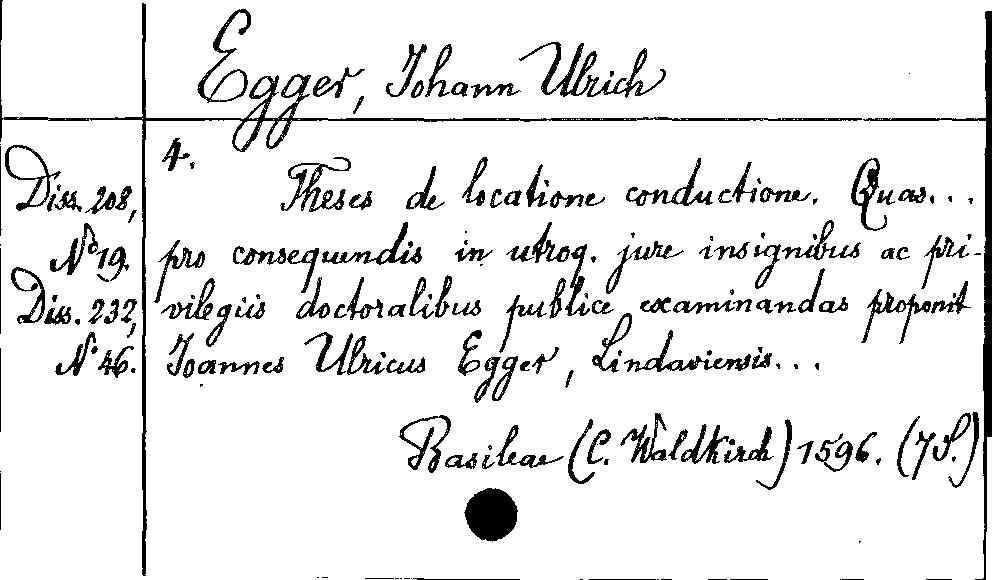 Egger, Johann Ulrich
4.
Diss. 208, Theses de locatione conductione. Quas...
No 19. pro consequendis in utroq. jure insignibus ac pri-
Diss. 232, vilegiis doctoralibus publice examinandas proponit
No 46. Joannes Ulricus Egger, Lindaviensis...
Basileae (C. Waldkirch) 1596. (7 S.)